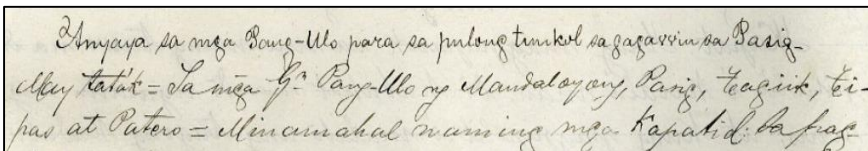 Anyaya sa mga Pang-Ulo para sa pulong tunkol sa gagawin sa Pasig-
May taták = Sa mga Gr. Pang-Ulo ng Mandaloyong, Pasig, teagiik, tei-
pas at Patero = Minamahal naming mga Kapatid: Sa pag-